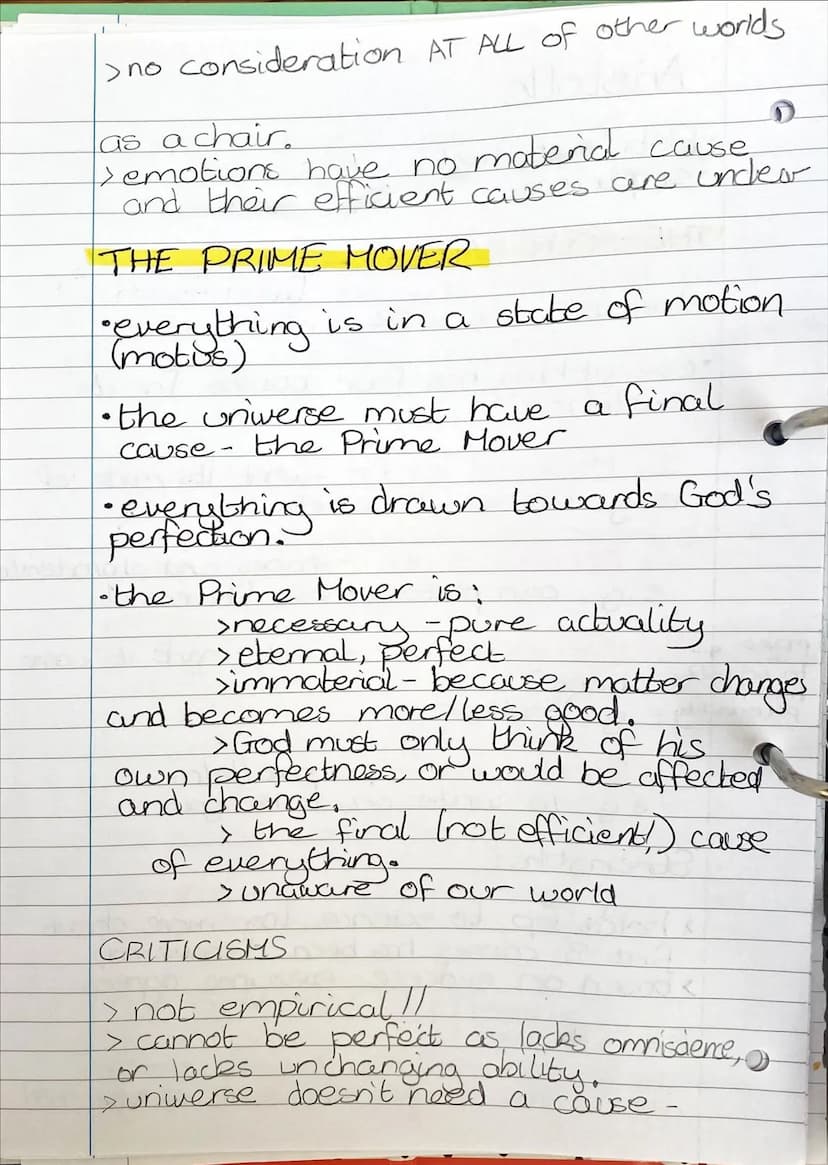 >no consideration AT ALL of other worlds
as a chair.
>emotions have no material cause
and their efficient causes are unclear
THE PRIME MOVER
•everything is in a state of motion
(motus)
•the universe must have a final
cause - the Prime Mover
•everything is drawn towards God's
perfection.
•the Prime Mover is:
>necessary - pure actuality
>eternal, perfect
>immaterial - because matter changes
and becomes more/less good.
>God must only think of his
own perfectness, or would be affected
and change.
> the final (not efficient!) cause
of everything.
>unaware of our world
CRITICISMS
> not empirical!!
> cannot be perfect as lacks omniscience,
or lacks unchanging ability.
>universe doesn't need a cause -